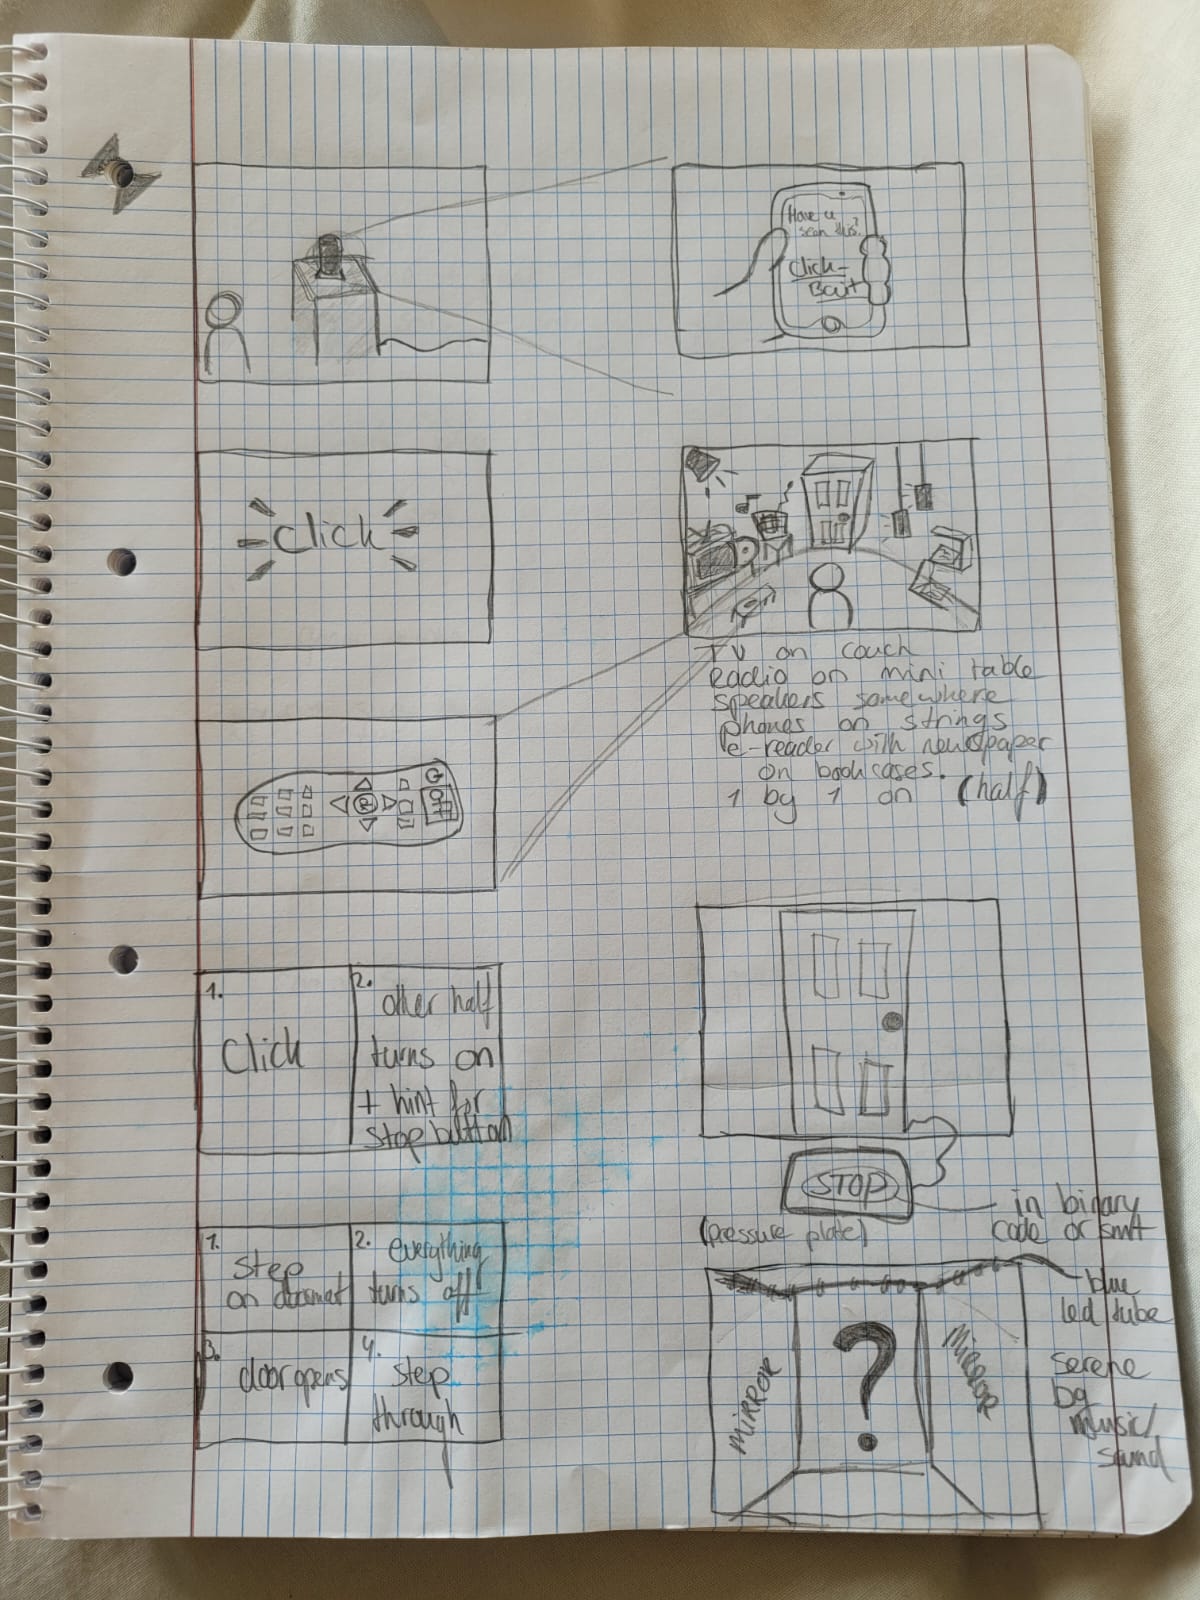 Have u
seen this?
Click-
Bait
Click
TV on couch
Radio on mini table
speakers somewhere
phones on strings
e-reader with newspaper
on bookcases.
1 by 1 on (half)
OFF
1.
Click
2.
other half
turns on
+ hint for
stop button
STOP
(pressure plate)
in binary
code or smt
1.
step
on doormat
2.
everything
turns off
3.
door opens
4.
step
through
MIRROR
?
MIRROR
blue
led tube
serene
bg
music/
sound